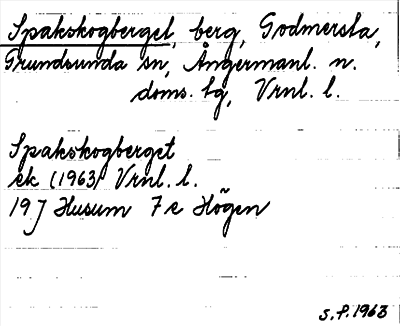 Spakskogberget, berg, Godmersta,
Grundsunda sn, Ångermanl. n.
doms. lg, Vrnl. l.
Spakskogberget
ek (1963) Vrnl. l.
19 J Husum 7 e Högen
S.P. 1963